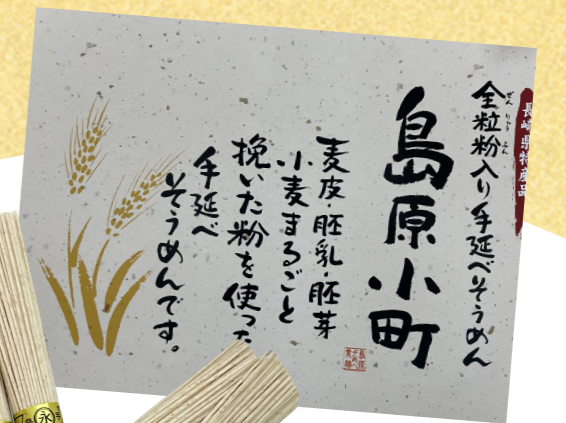 長崎県特産品
全粒粉入り手延べそうめん
ぜんりゅうふん
島原小町
麦皮・胚乳・胚芽
小麦まるごと
挽いた粉を使った
手延べ
そうめんです。
永